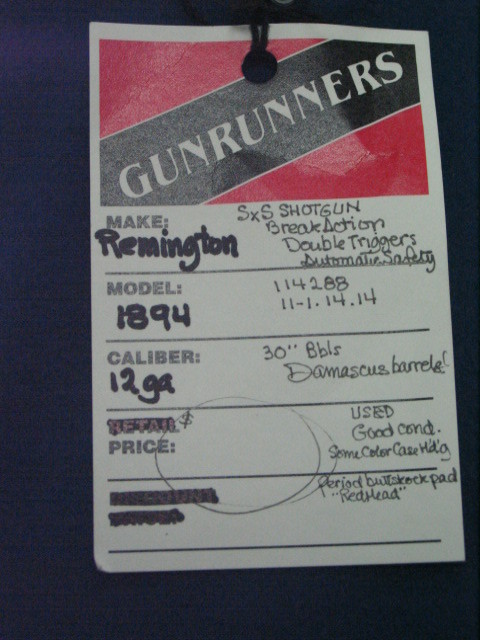 GUNRUNNERS
MAKE:
Remington
SxS SHOTGUN
Break Action
Double Triggers
Automatic Safety
MODEL:
1894
114288
11-1.14.14
CALIBER:
12ga
30" Bbls
Damascus barrels!
RETAIL $
PRICE:
USED
Good cond.
Some Color Case Hd'g
DISCOUNT
period buttstock pad
"RedHead"